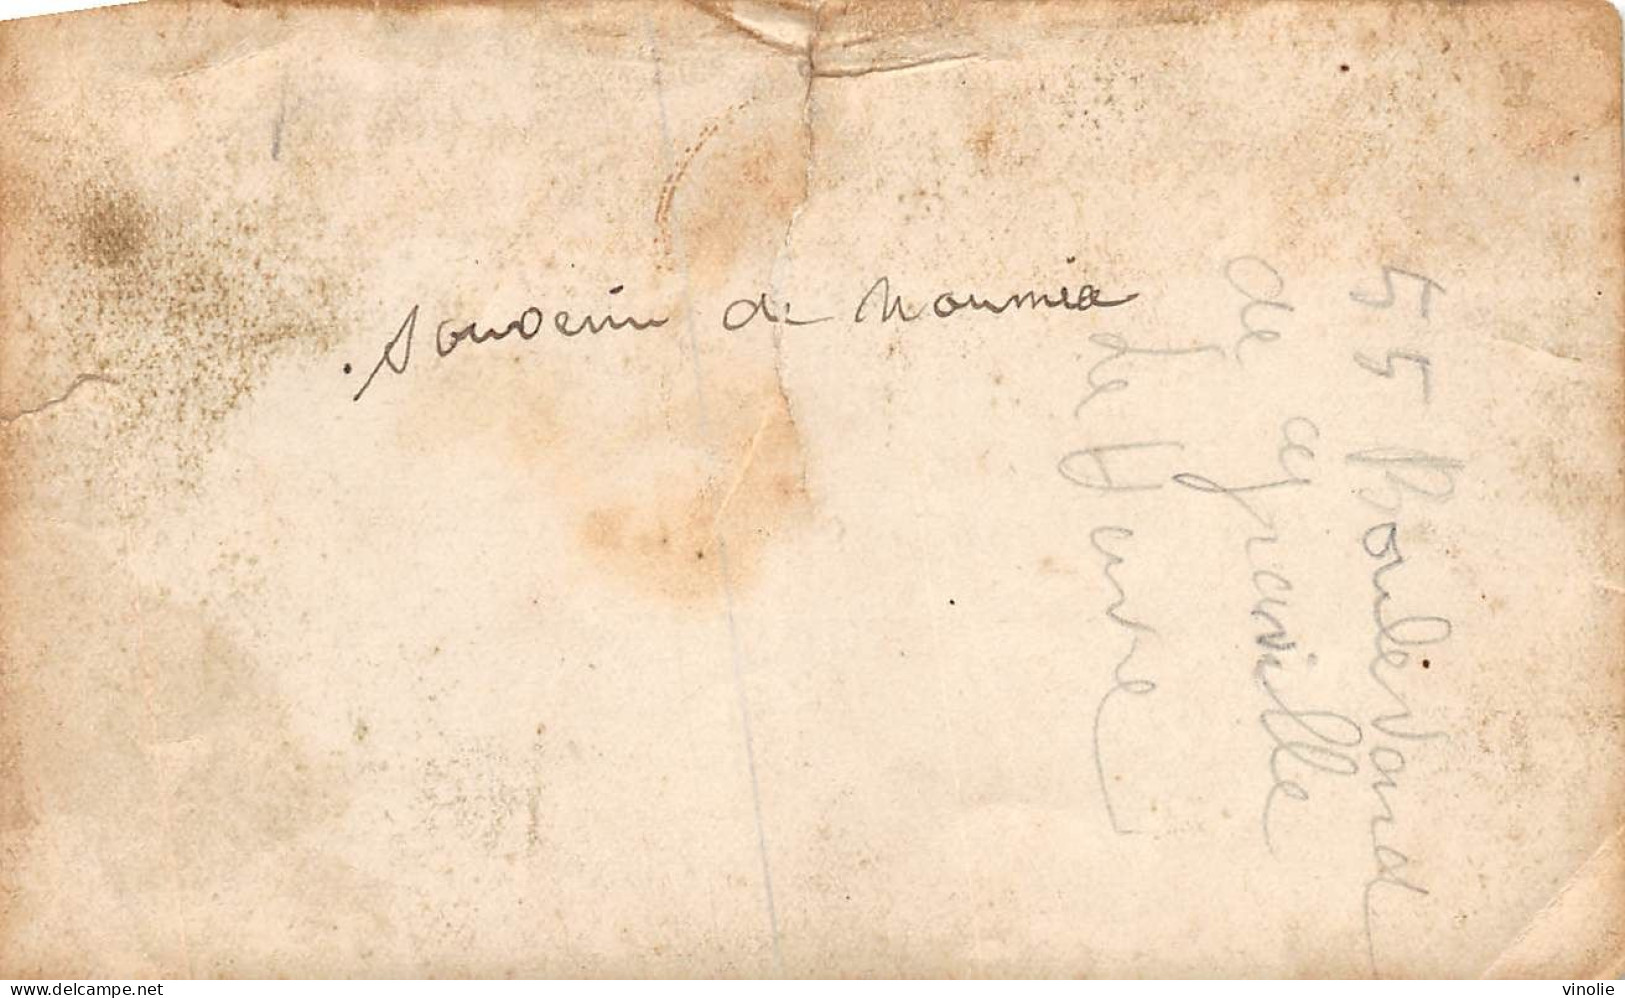 Souvenir de Noumea
55 Boulevard
de Graville
Le Havre
www.delcampe.net
vinolie